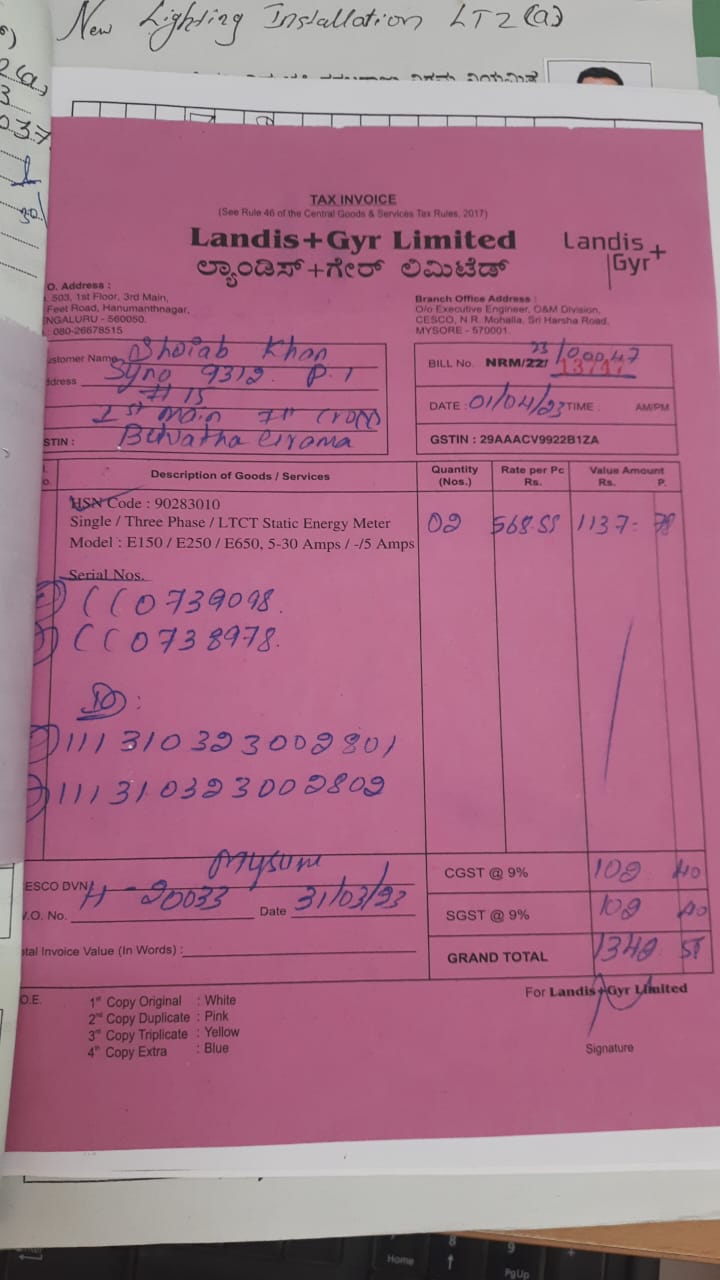 New Lighting Installation LT2(a)
TAX INVOICE
(See Rule 46 of the Central Goods & Services Tax Rules, 2017)
Landis+Gyr Limited
ಲ್ಯಾಂಡಿಸ್+ಗೇರ್ ಲಿಮಿಟೆಡ್
Landis+
Gyr
O. Address :
503, 1st Floor, 3rd Main,
Feet Road, Hanumanthnagar,
NGALURU - 560050.
: 080-26678515
Branch Office Address :
O/o Executive Engineer, O&M Division,
CESCO, N.R. Mohalla, Sri Harsha Road,
MYSORE - 570001.
ustomer Name Shoiab Khan
ddress Syno 9312 P.1
# 15
1st Main 7th Cross
STIN : Belvatha Grama
BILL No. NRM/22/ 23/00047
DATE : 01/04/23 TIME : AM/PM
GSTIN : 29AAACV9922B1ZA
Description of Goods / Services
Quantity (Nos.)
Rate per Pc Rs.
Value Amount Rs. P.
HSN Code : 90283010
Single / Three Phase / LTCT Static Energy Meter
Model : E150 / E250 / E650, 5-30 Amps / -/5 Amps
02 568.55 1137- 78
Serial Nos.
CC0739098.
CC0738978.
ID :
111310323002801
111310323002802
ESCO DVN Mysore
.O. No. H-20033 Date 31/03/23
tal Invoice Value (In Words) :
CGST @ 9% 102 40
SGST @ 9% 102 40
GRAND TOTAL 1342 58
O.E.
1st Copy Original : White
2nd Copy Duplicate : Pink
3rd Copy Triplicate : Yellow
4th Copy Extra : Blue
For Landis+Gyr Limited
Signature
Home
8
9
PgUp